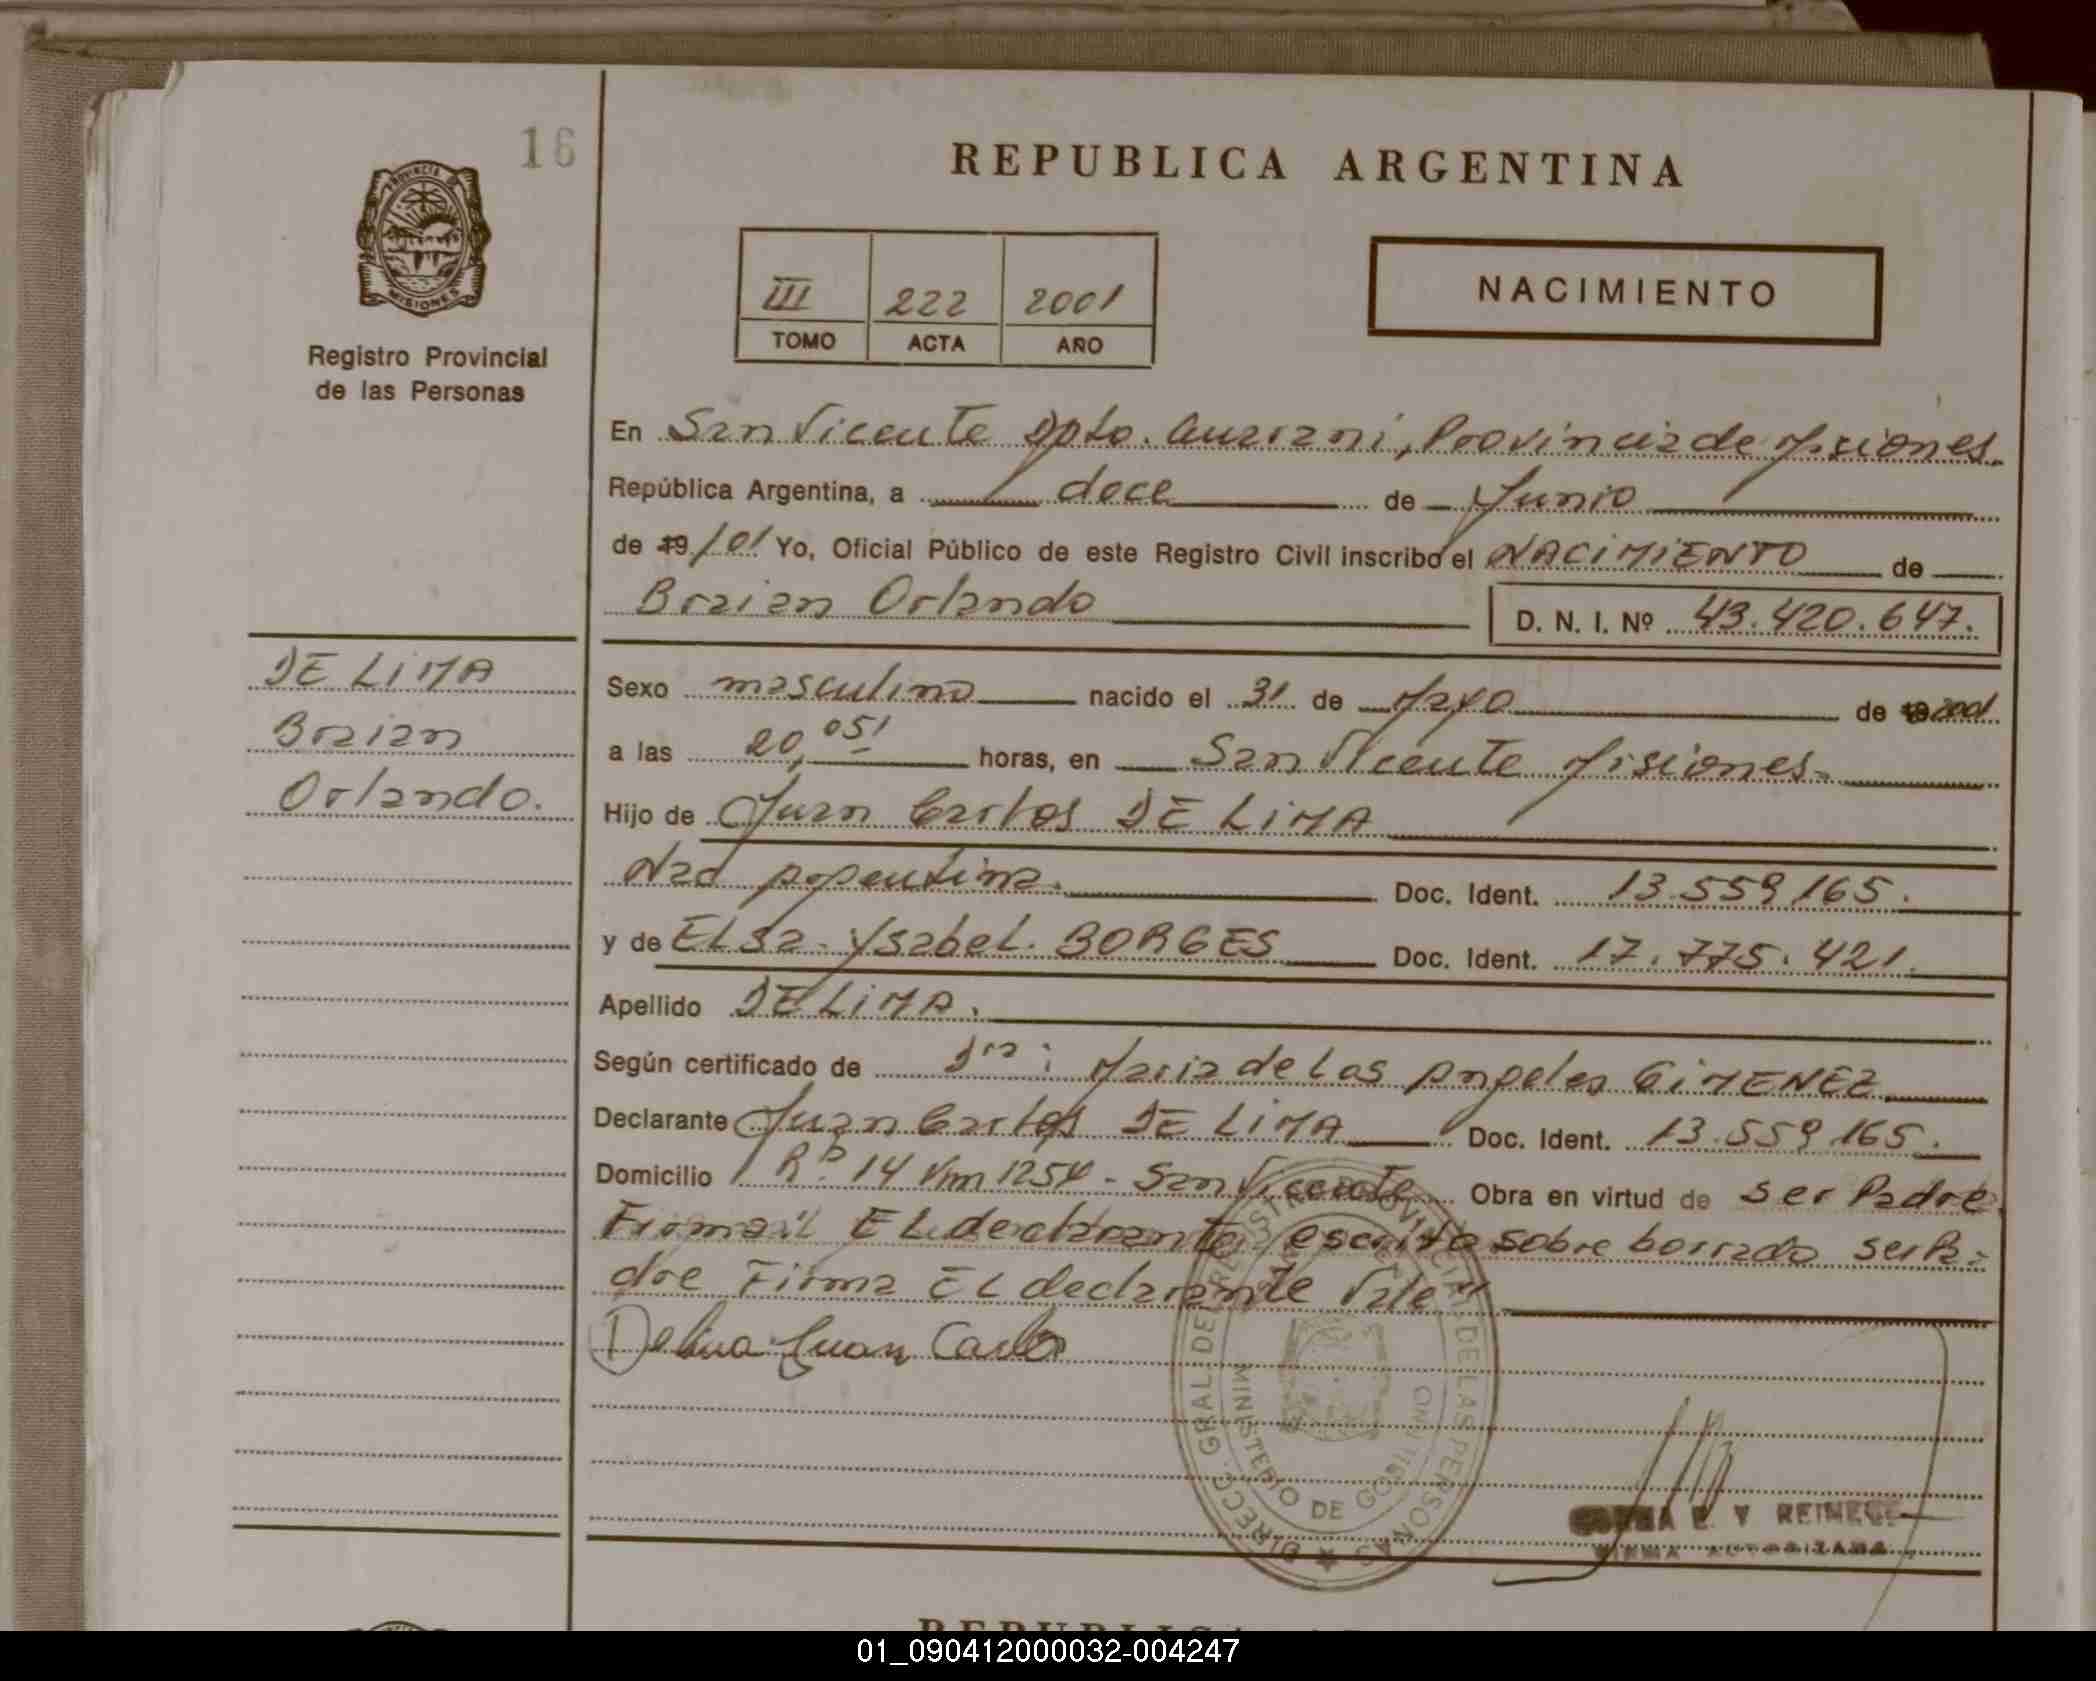 16
PROVINCIA DE
MISIONES
Registro Provincial
de las Personas
REPUBLICA ARGENTINA
III 222 2001
TOMO ACTA AÑO
NACIMIENTO
En San Vicente Dpto. Guarani, Provincia de Misiones.
República Argentina, a doce de Junio
de 19/01 Yo, Oficial Público de este Registro Civil inscribo el NACIMIENTO de
Braian Orlando D. N. I. Nº 43.420.647.
DE LIMA
Braian
Orlando.
Sexo masculino nacido el 31 de Mayo de 2001
a las 20,05' horas, en San Vicente Misiones.
Hijo de Juan Carlos DE LIMA
Nac Argentina. Doc. Ident. 13.559.165.
y de ELSa Ysabel. BORGES Doc. Ident. 17.775.421.
Apellido DE LIMA.
Según certificado de Dra: Maria de Los Angeles GIMENEZ
Declarante Juan Carlos DE LIMA Doc. Ident. 13.559.165.
Domicilio Rª 14 Km 1254 - San Vicente Obra en virtud de ser Padre
El declarante, escrito sobre borrado ser Pa-
dre Firma EL declarante Vale"
Delima Juan Carlos
DIRECC. GRAL DEL REGISTRO PROVINCIAL DE LAS PERSONAS
MINISTERIO DE GOBIERNO
REPUBLICA
01_090412000032-004247